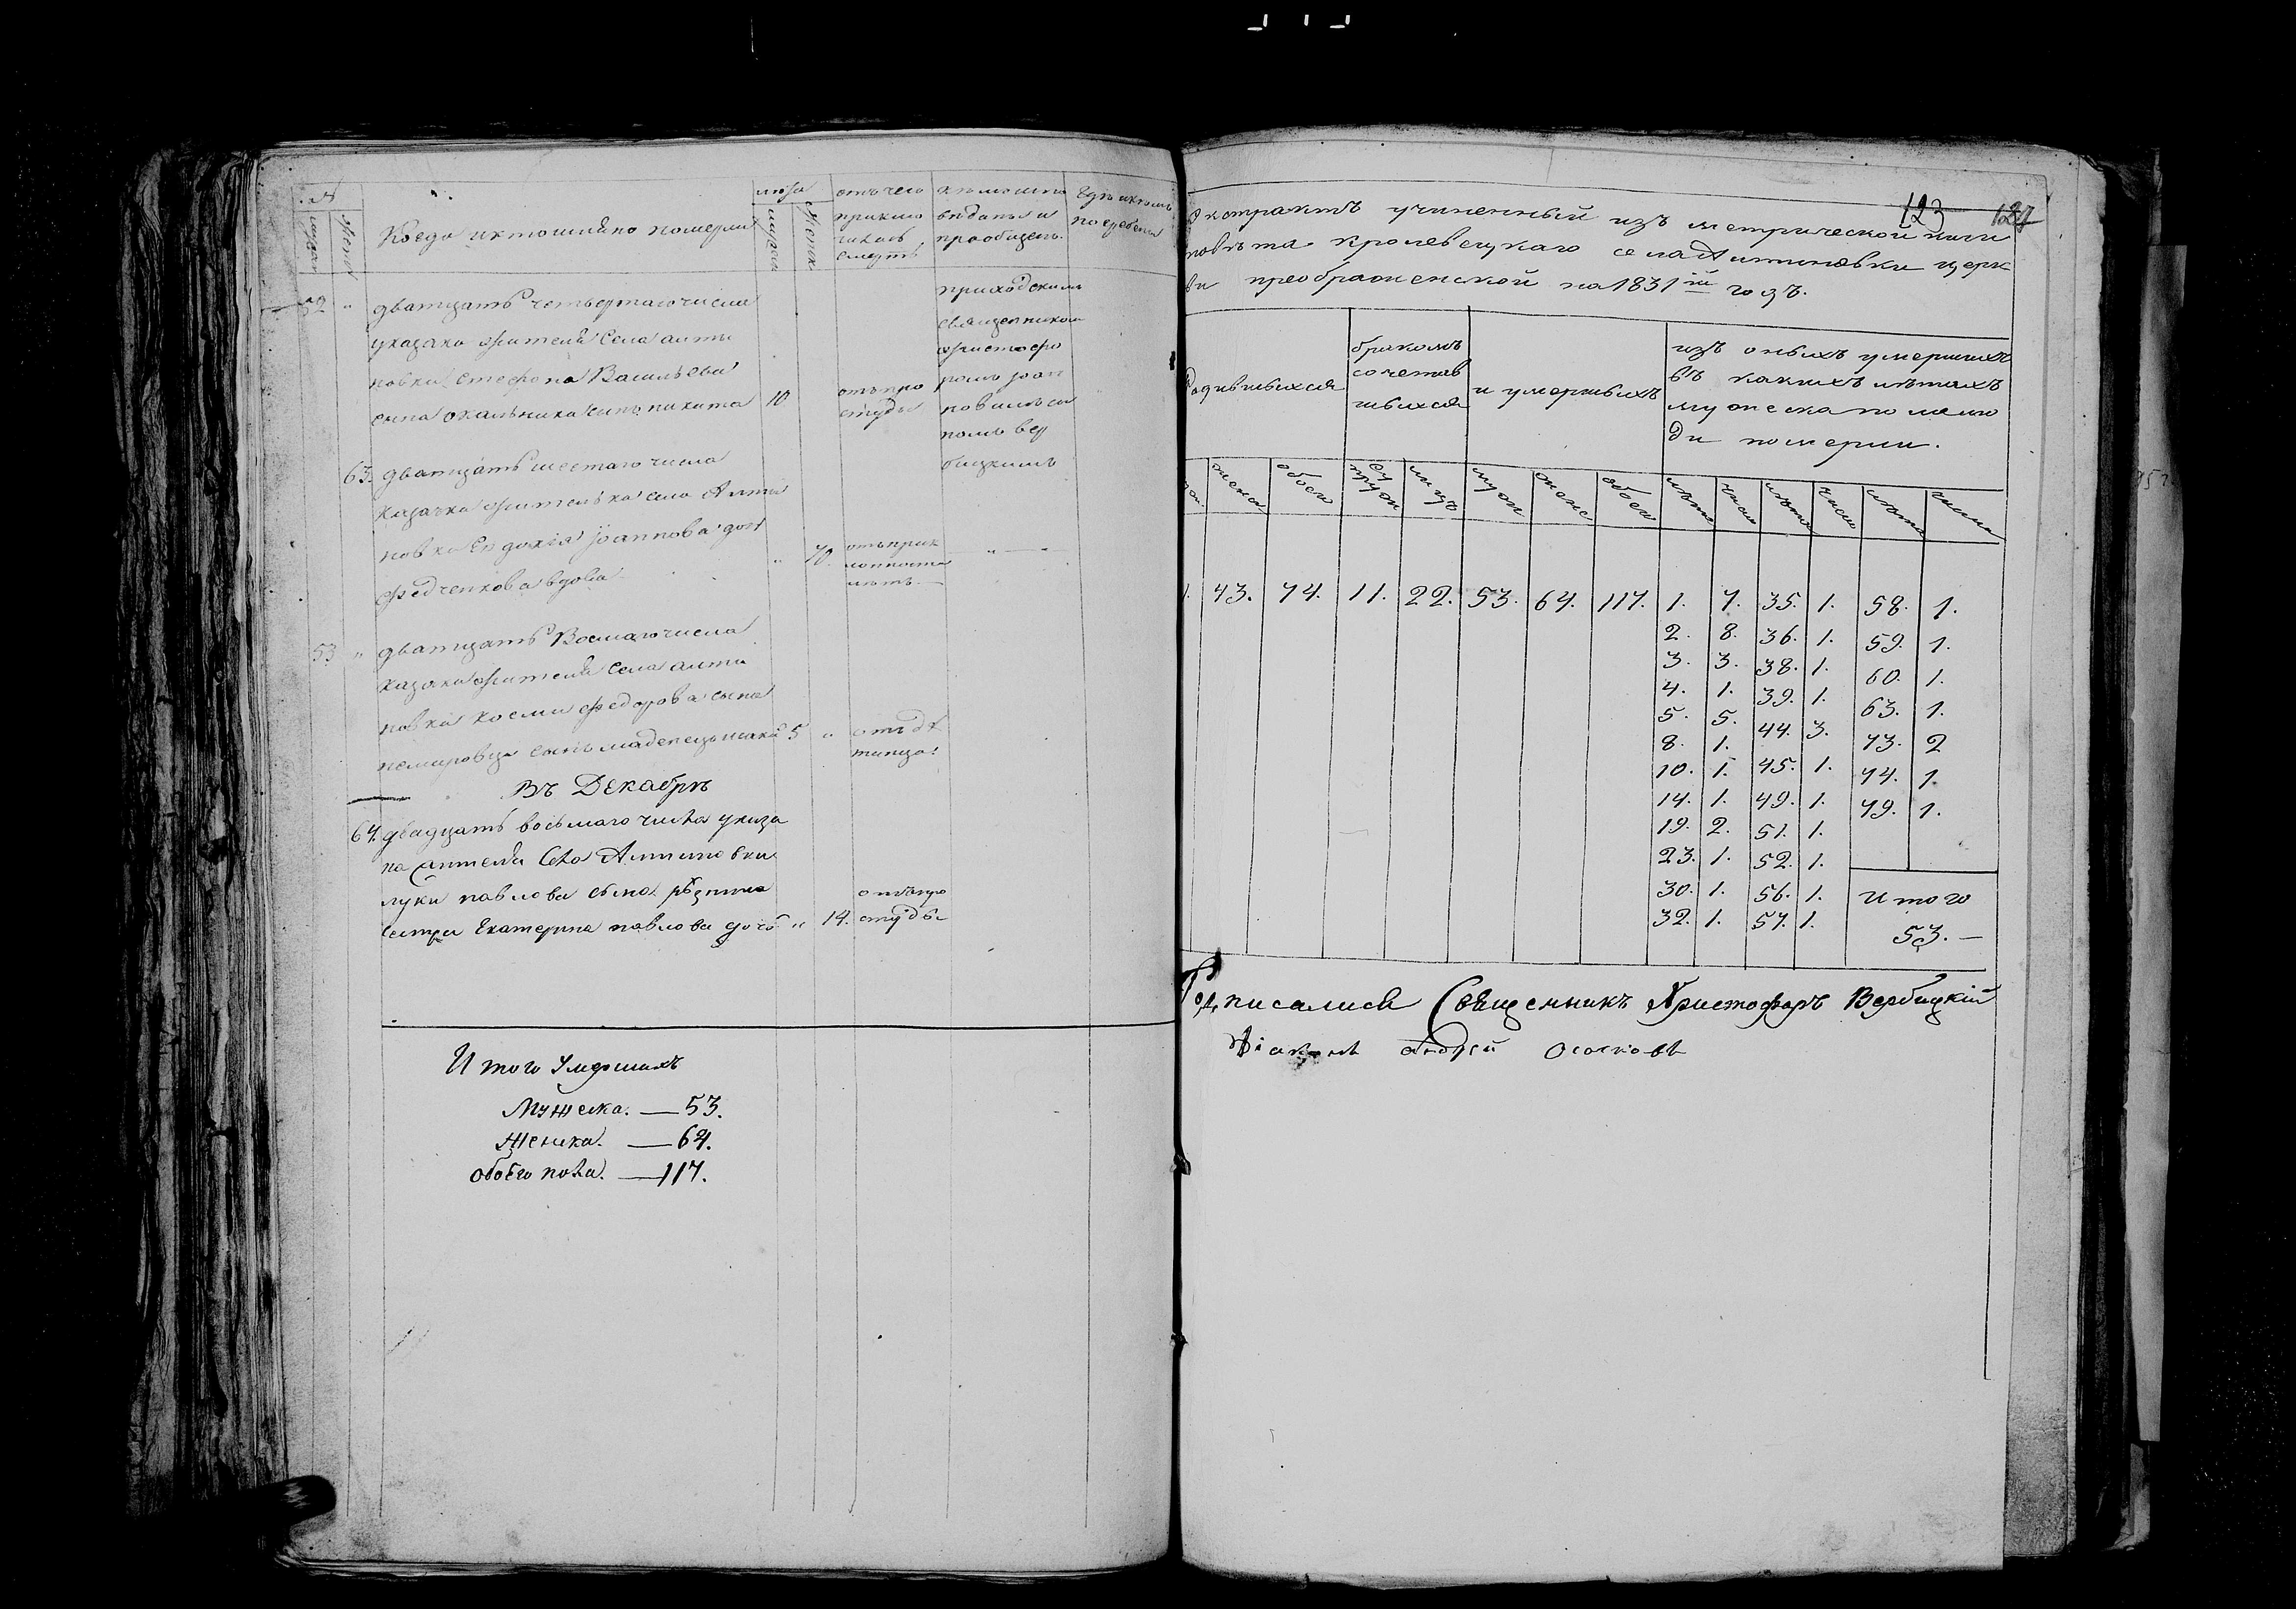 №
мужск
женск
Когда и кто имяно померли
лѣта
мужск
женск
отъ чего
приклю
чилась
смерть
кѣмъ испо
виданы и
приобщены
Гдѣ и кѣмъ
погребены
52 "
дватцать четвертаго числа
у казака жителя села алти
новки Стефана Васильева
сына сынъ никита 10
отъ про
студы
приходскимъ
священникомъ
христофо
ромъ
вер
бицкимъ
63.
дватцать шестаго числа
казачка жителька села Алти
новки Евдокія Іоаннова дочь
Федченкова вдова " 70.
53 "
дватцать Восмаго числа
казака жителя села алти
новки космы Федорова сына
сынъ младенецъ 5 "
Въ Декабрѣ
64. двадцать восьмаго числа у каза
ка жителя села Алтиновки
луки павлова сына
сестра Екатерина павлова дочь " 14.
отъ про
студы
Итого Умершихъ
Мужеска. — 53.
Женска. — 64.
обоего пола. — 117.
123
Экстрактъ учиненный изъ метрической книги
повѣта кролевецкаго села Алтиновки церк
ви преображенской на 1831й годъ.
Родившихся
бракомъ
сочетав
шихся
и умершихъ
изъ оныхъ умершихъ
въ какихъ лѣтахъ
мужеска полу лю
ди померли.
женск обоего супруж лицъ муж женс обоего лѣта числ лѣта числ лѣта числа
43. 74. 11. 22. 53. 64. 117. 1. 7. 35. 1. 58. 1.
2. 8. 36. 1. 59. 1.
3. 3. 38. 1. 60. 1.
4. 1. 39. 1. 63. 1.
5. 5. 44. 3. 73. 2
8. 1. 45. 1. 74. 1.
10. 1. 49. 1. 79. 1.
14. 1. 51. 1.
19. 2. 52. 1.
23. 1. 56. 1.
30. 1. 57. 1.
32. 1.
Итого
53. —
Подписались Священникъ Христофоръ Вербицкій
Діаконъ андрей